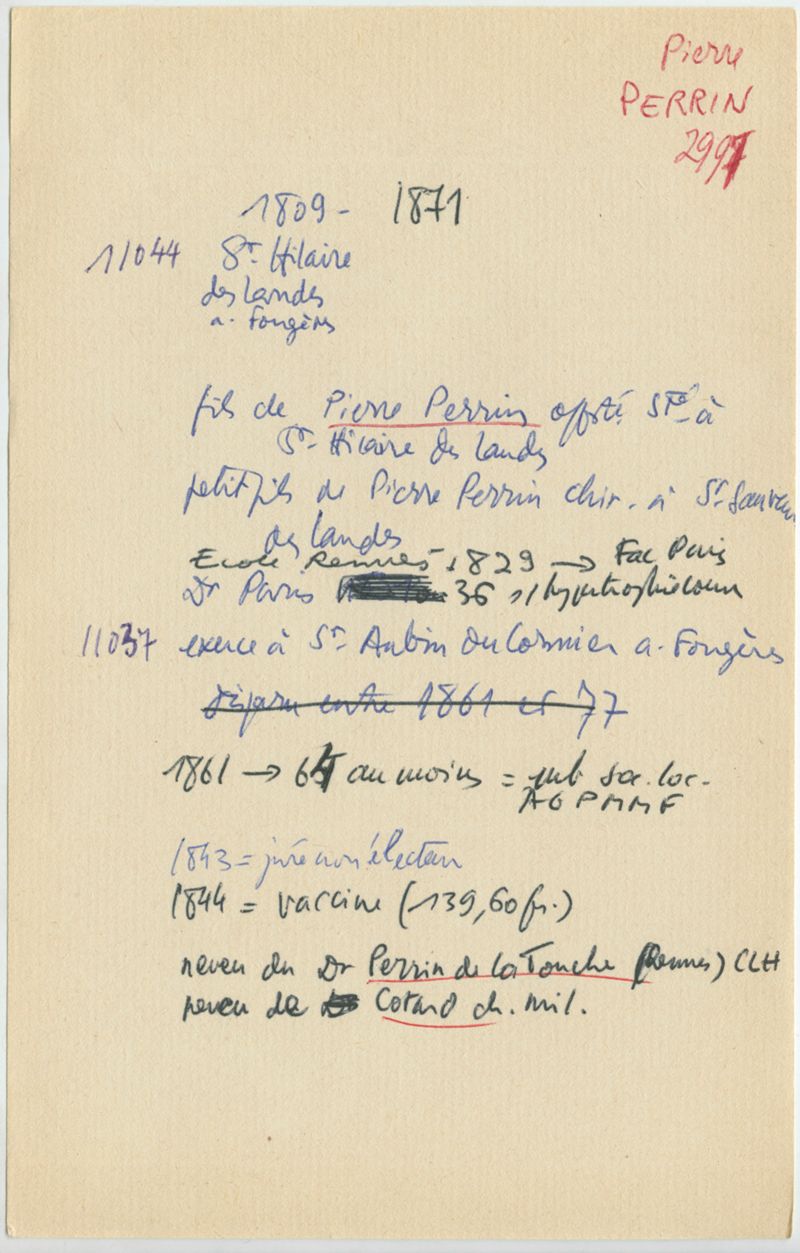 Pierre
PERRIN
2997
1809 - 1871
11044 St Hilaire
des Landes
a. Fougères
fils de Pierre Perrin off. Sté à
St Hilaire des Landes
petit fils de Pierre Perrin chir. à St Sauveur
des Landes
Ecole Rennes 1829 → Fac Paris
Dr Paris 36 s/hypertrophie coeur
11037 exerce à St Aubin du Cormier a. Fougères
disparu entre 1861 et 77
1861 → 64 au moins = mb soc. loc.
AGPMMF
1843 = juré non électeur
1844 = vaccine (139,60 fr.)
neveu du Dr Perrin de la Touche (Rennes) CLH
neveu de Cotard ch. mil.